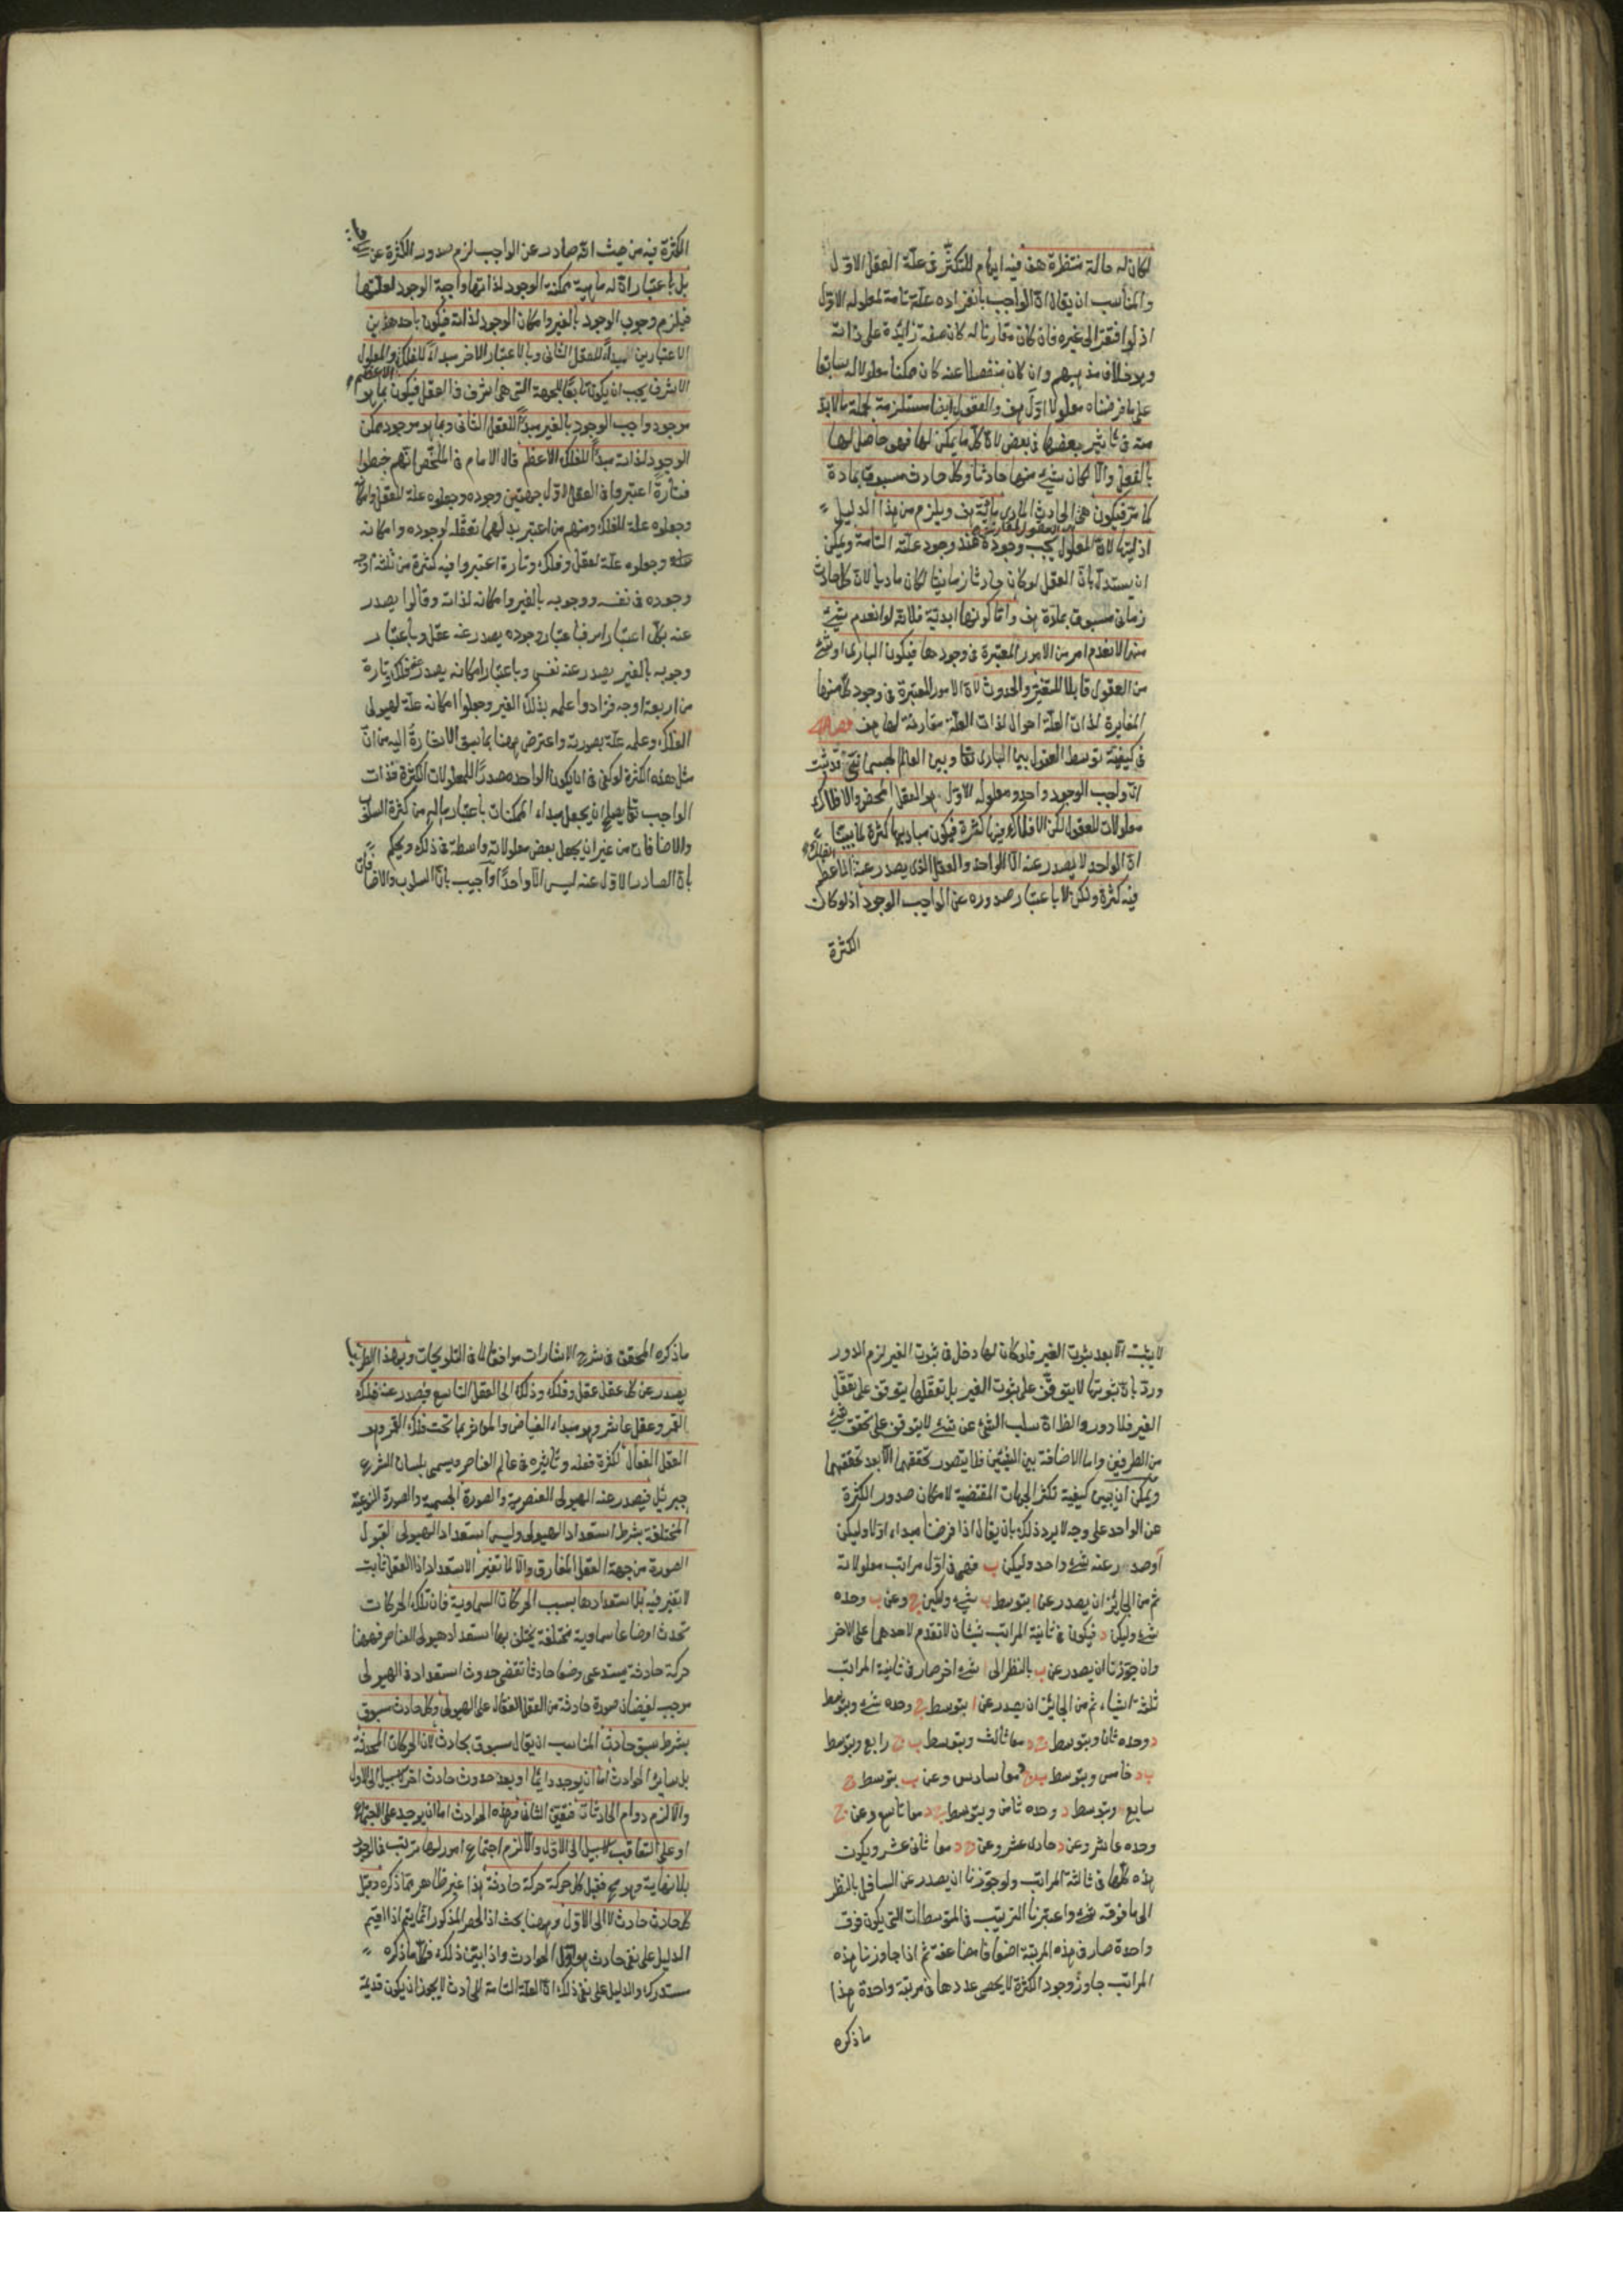 لكان له حالة منتظرة هف فيه ايهام للتكثر فى علة العقل الاول
والمناسب ان يقال ان الواجب بانفراده علة تامة لمعلوله الاول
اذ لو افتقر الى غيره فان كان مقارنا له كان صفة زائدة على ذاته
وهو خلاف مذهبهم وان كان منفصلا عنه كان ممكنا معلولا له سابقا
على ما فرضناه معلولا اول هف والعقول ايضا مستلزمة لجملة ما لا بد
منه فى تاثير بعضها فى بعض لان كل ما يمكن لها فهو حاصل لها
بالفعل والا لكان شئ منها حادثا وكل حادث مسبوق بمادة
كما مر فيكون هى الحادث المادى مادية هف ويلزم من هذا الدليل
ازليتها لان المعلول يجب وجوده عند وجود علته التامة ويمكن
ان يستدل بان العقل لو كان حادثا زمانيا لكان ماديا لان كل حادث
زمانى مسبوق بمادة هف واما كونها ابدية فلانه لو انعدم شئ
منها لانعدم امر من الامور المعتبرة فى وجودها فيكون البارى او شئ
من العقول قابلا للتغير والحدوث لان الامور المعتبرة فى وجود كل منها
المغايرة لذات العلة احوال لذات العلة مقارنة لها هف فصل
فى كيفية توسط العقول بين البارى تعا وبين العالم الجسمانى قد ثبت
ان واجب الوجود واحد ومعلوله الاول هو العقل المحض والافلاك
معلولات للعقول لكن الافلاك فيها كثرة فيكون مباديها كثرة لما بينا
ان الواحد لا يصدر عنه الا الواحد والعقل الذى يصدر عنه الفلك الاعظم
فيه كثرة ولكن لا باعتبار صدوره عن الواجب الوجود اذ لو كان
الكثرة
الكثرة فيه من حيث انه صادر عن الواجب لزم صدور الكثرة عن
بل باعتبار ان له ماهية ممكنة الوجود لذاتها واجبة الوجود لعلتها
فيلزم وجوب الوجود بالغير وامكان الوجود لذاته فيكون باحد هذين
الاعتبارين مبداً للعقل الثانى وبالاعتبار الاخر مبداً للفلك الاعظم والمعلول
الاشرف يجب ان يكون تابعا للجهة التى هى اشرف فى العقل فيكون بما هو
موجود واجب الوجود بالغير مبداً للعقل الثانى وبما هو موجود ممكن
الوجود لذاته مبداً للفلك الاعظم قال الامام فى الملخص انهم خبطوا
فتارة اعتبروا فى العقل الاول جهتين وجوده وجعلوه علة للعقل وامكانه
وجعلوه علة للفلك ومنهم من اعتبر بدلهما تعقله لوجوده وامكانه
وجعلوه علة لعقل وفلك وتارة اعتبروا فيه كثرة من ثلثة اوجه
وجوده فى نفسه ووجوبه بالغير وامكانه لذاته وقالوا يصدر
عنه بكل اعتبار امر فباعتبار وجوده يصدر عنه عقل وباعتبار
وجوبه بالغير يصدر عنه نفس وباعتبار امكانه يصدر عنه فلك وتارة
من اربعة اوجه فزادوا علمه بذلك الغير وجعلوا امكانه علة لهيولى
الفلك وعلمه علة بصورته واعترض ههنا بما سبق الاشارة اليه من ان
مثل هذه الكثرة لو كفى فى ان يكون الواحد مصدراً للمعلولات الكثيرة فذات
الواجب تعا يصلح ان يجعل مبداء للممكنات باعتبار ماله من كثرة السلوب
والاضافات من غير ان يجعل بعض معلولاته واسطة فى ذلك ويحكم
بان الصادر الاول عنه ليس الا واحدا واجيب بان السلوب والاضافات
لا يثبت الا بعد ثبوت الغير فلو كان لها دخل فى ثبوت الغير لزم الدور
ورد بان ثبوتها لا يتوقف على ثبوت الغير بل تعقلها يتوقف على تعقل
الغير فلا دور والظ ان سلب الشئ عن شئ لا يتوقف على تحقق شئ
من الطرفين واما الاضافة بين الشيئين فلا يتصور تحققها الا بعد تحققهما
ويمكن ان يبين كيفية تكثر الجهات المقتضية لامكان صدور الكثرة
عن الواحد على وجه لا يرد ذلك بان يقال اذا فرضنا مبداء اولا وليكن
آ وصدر عنه شئ واحد وليكن ب فهو فى اول مراتب معلولاته
ثم من الجايز ان يصدر عن ا بتوسط ب شئ وليكن ج وعن ب وحده
شئ وليكن د فيكون فى ثانية المراتب شيئان لا تقدم لاحدهما على الاخر
وان جوزنا ان يصدر عن ب بالنظر الى ا شئ اخر صار فى ثانية المراتب
ثلثة اشياء ثم من الجايز ان يصدر عن ا بتوسط ج وحده شئ وبتوسط
د وحده ثان وبتوسط ج د معا ثالث وبتوسط ب ج رابع وبتوسط
ب د خامس وبتوسط ب ج د معا سادس وعن ب بتوسط ج
سابع وبتوسط د وحده ثامن وبتوسط ج د معا تاسع وعن ج
وحده عاشر وعن د حادى عشر وعن ج د معا ثانى عشر ويكون
هذه كلها فى ثالثة المراتب ولو جوزنا ان يصدر عن السافل بالنظر
الى ما فوقه شئ واعتبرنا الترتيب فى المتوسطات التى يكون فوق
واحدة صار فى هذه المرتبة اضعافا مضاعفة ثم اذا جاوزنا هذه
المراتب جاوز وجود الكثرة لا يحصى عددها فى مرتبة واحدة هذا
ما ذكره
ما ذكره المحقق فى شرح الاشارات موافقا لما فى التلويحات وبهذا الطريق
يصدر عن كل عقل عقل وفلك وذلك الى العقل التاسع فيصدر عنه فلك
القمر وعقل عاشر وهو مبداء الفياض والموثر بما تحت فلك القمر وهو
العقل الفعال لكثرة فعله وتاثيره فى عالم العناصر ويسمى بلسان الشرع
جبرئيل فيصدر عنه الهيولى العنصرية والصورة الجسمية والصورة النوعية
المختلفة بشرط استعداد الهيولى وليس استعداد الهيولى لقبول
الصورة من جهة العقل المفارق والا لما تغير الاستعداد اذ العقل ثابت
لا تغير فيه بل استعدادها بسبب الحركات السماوية فان تلك الحركات
تحدث اوضاعا سماوية مختلفة يختلف بها استعداد هيولى العناصر فههنا
حركة حادثة يستدعى وضعا حادثا تقضى حدوث استعداد فى الهيولى
موجب لفيضان صورة حادثة من العقل الفعال على الهيولى وكل حادث مسبوق
بشرط سبق حادث المناسب ان يقال مسبوق بحادث لان الحركات المحدثة
بل ساير الحوادث اما ان يوجد دايما او بعد حدوث حادث اخر لا سبيل الى الاول
والا لزم دوام الحادثات فتعين الثانى وهذه الحوادث اما ان يوجد على الاجتماع
او على التعاقب لا سبيل الى الاول والا لزم اجتماع امور لها ترتب فى الوجود
بلا نهاية وهو مح فقبل كل حركة حركة حادثة هذا غير ظاهر مما ذكره وقبل
كل حادث حادث لا الى الاول وههنا بحث اذ الحصر المذكور انما يتم اذا اقيم
الدليل على نفى حادث هو اول الحوادث واذا بين ذلك فكل ما ذكره
مستدرك والدليل على نفى ذلك ان العلة التامة للحادث لا يجوز ان يكون قديمة